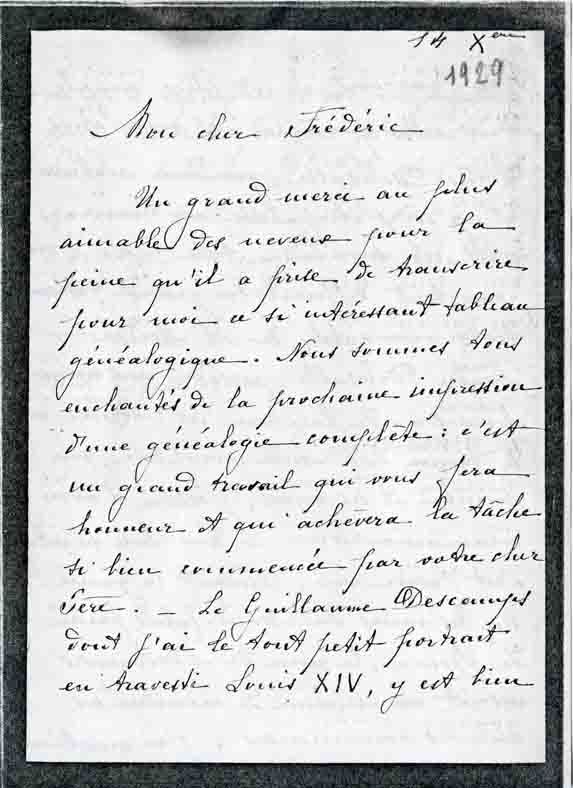 14 Xbre
1929
Mon cher Frédéric
Un grand merci au plus
aimable des neveux pour la
peine qu'il a prise de transcrire
pour moi ce si intéressant tableau
généalogique. Nous sommes tous
enchantés de la prochaine impression
d'une généalogie complète : c'est
un grand travail qui vous fera
honneur et qui achèvera la tâche
si bien commencée par votre cher
Père. — Le Guillaume Descamps
dont j'ai le tout petit portrait
en travesti Louis XIV, y est bien